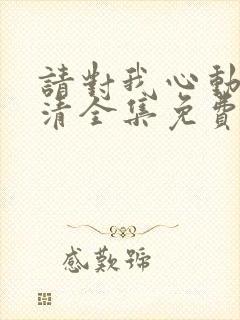 請對我心動
清全集免費
感歎號